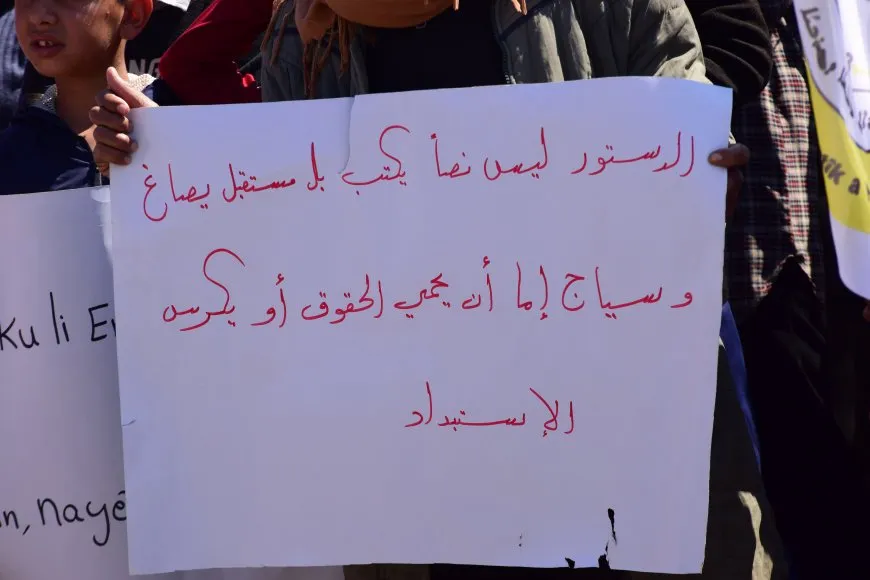 الدستور ليس نصأ يكتب بل مستقبل يصاغ
وسياج إما أن يحمي الحقوق أو يكرس
الإستبداد
ku li
n, nayê